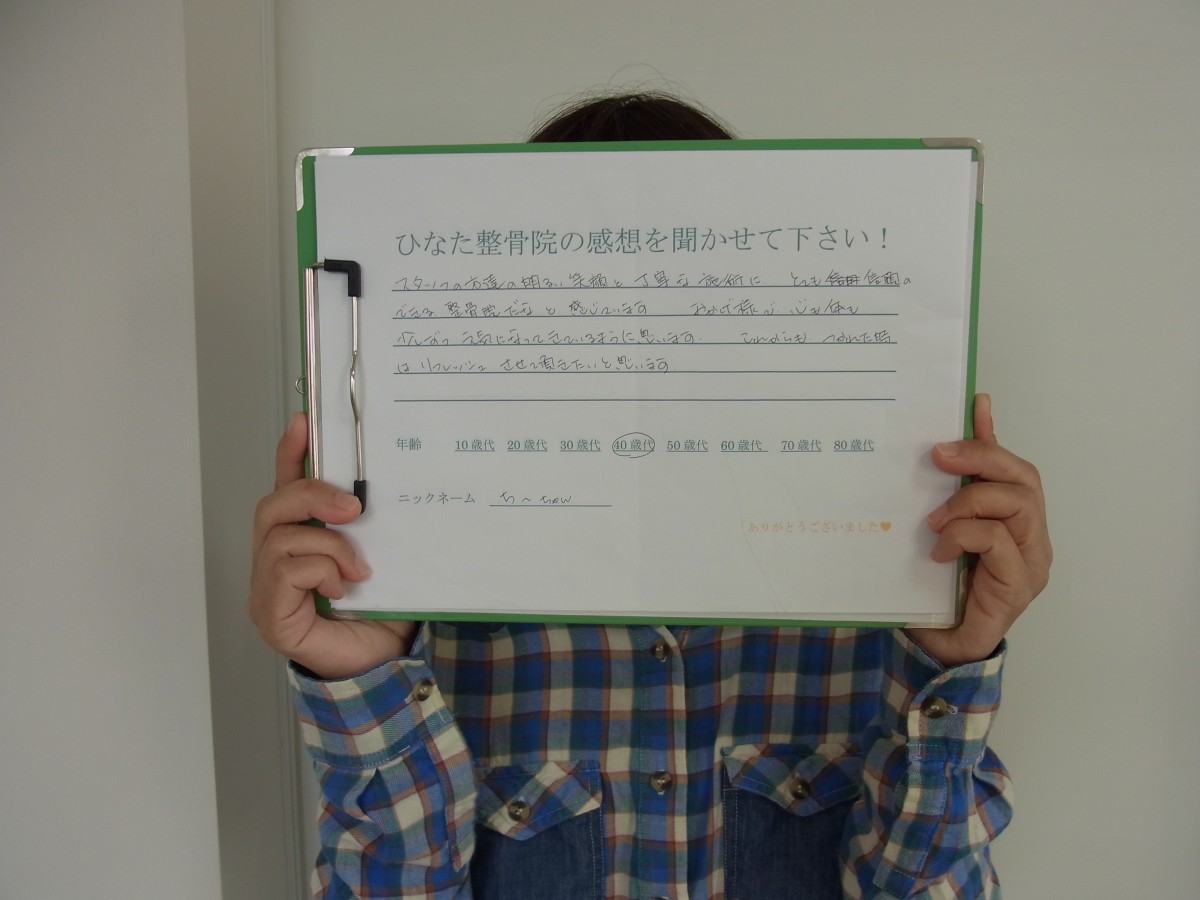 ひなた整骨院の感想を聞かせて下さい！
スタッフの方達の明るい笑顔と丁寧な施術に とても信頼の
できる整骨院だなと感じています おかげ様で 心も体も
少しずつ元気になってきているように思います。 これからも つかれた時
は リフレッシュ させて頂きたいと思います。
年齢 10歳代 20歳代 30歳代 40歳代 50歳代 60歳代 70歳代 80歳代
ニックネーム ち～ちゃん
ありがとうございました♥